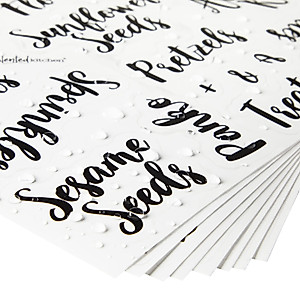 Sunflower
Seeds
Pretzels
Talented Kitchen
Sprinkles
+ & A
Panko
Sesame
Seeds